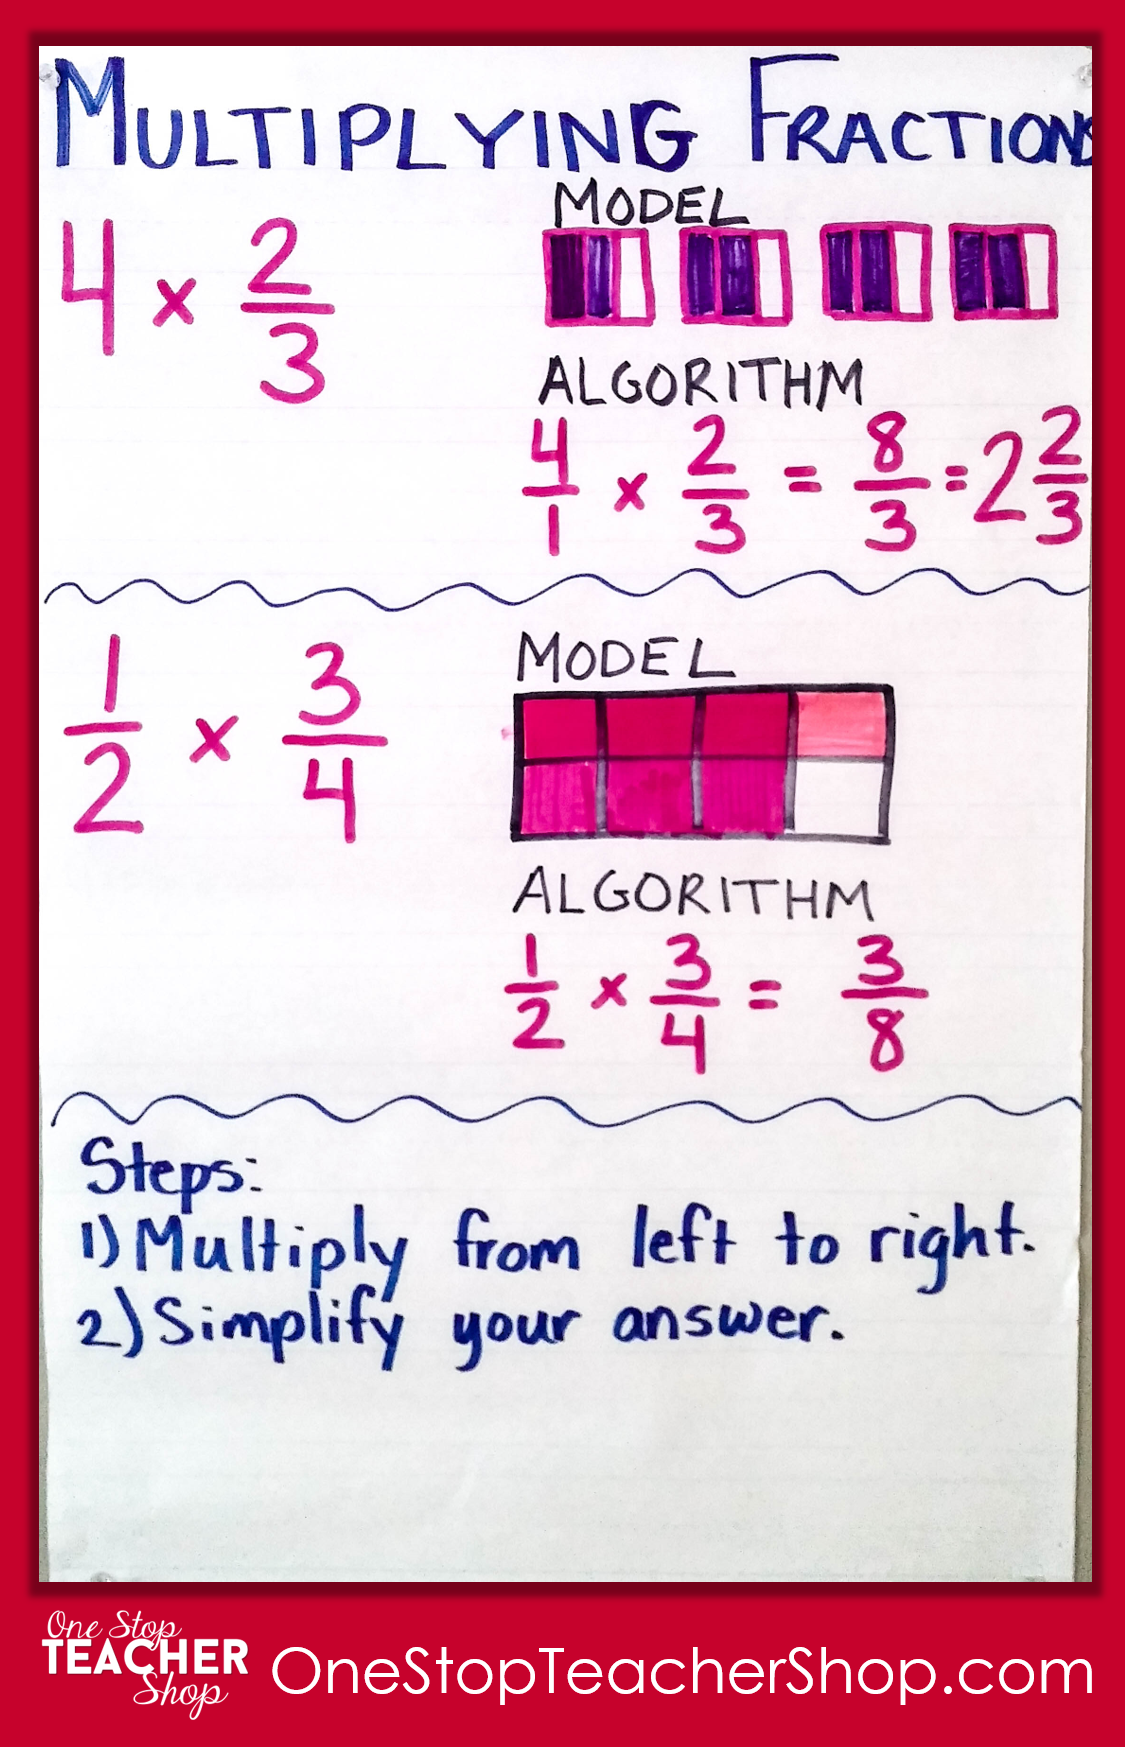 MULTIPLYING FRACTIONS
4 × 2/3
MODEL
ALGORITHM
4/1 × 2/3 = 8/3 = 2 2/3
1/2 × 3/4
MODEL
ALGORITHM
1/2 × 3/4 = 3/8
Steps:
1) Multiply from left to right.
2) Simplify your answer.
One Stop
TEACHER
Shop
OneStopTeacherShop.com